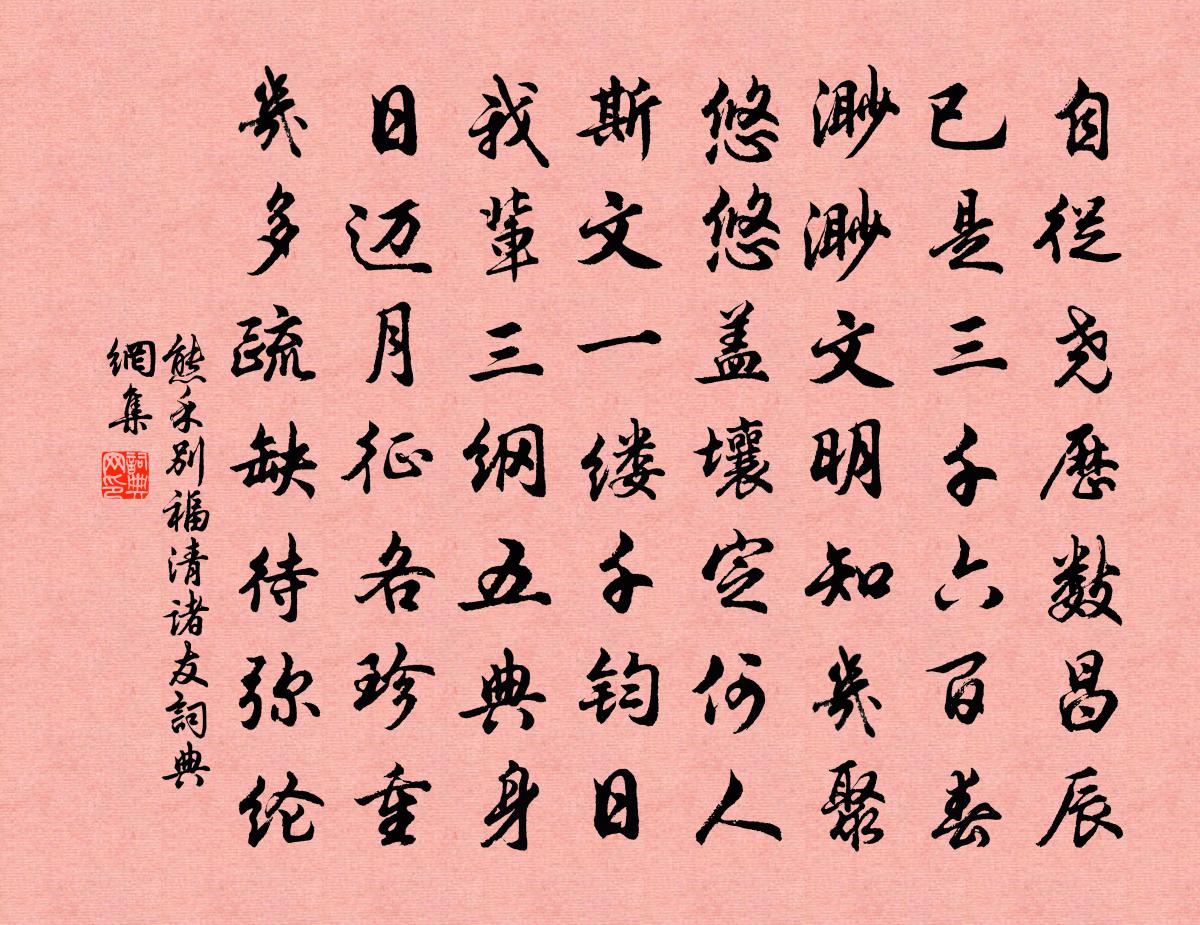 自從尧歷數昌辰
已是三千六百春
渺渺文明知幾聚
悠悠盖壤定何人
斯文一缕千钧日
我輩三纲五典身
日迈月征各珍重
幾多疏缺待弥纶
熊禾別福清諸友詞典
網集
詞典
网印